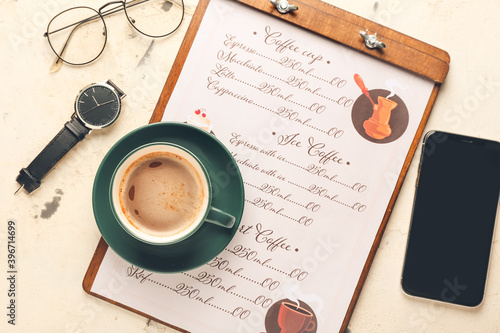 Coffee cup
Espresso 250ml 00
Macchiato 250ml 00
Latte 250ml 00
Cappuccino 250ml 00
Ice Coffee
Espresso with ice 250ml 00
Macchiato with ice 250ml 00
250ml 00
250ml 00
Coffee
250ml 00
250ml 00
250ml 00
Raf 250ml 00
Adobe Stock | #396714699